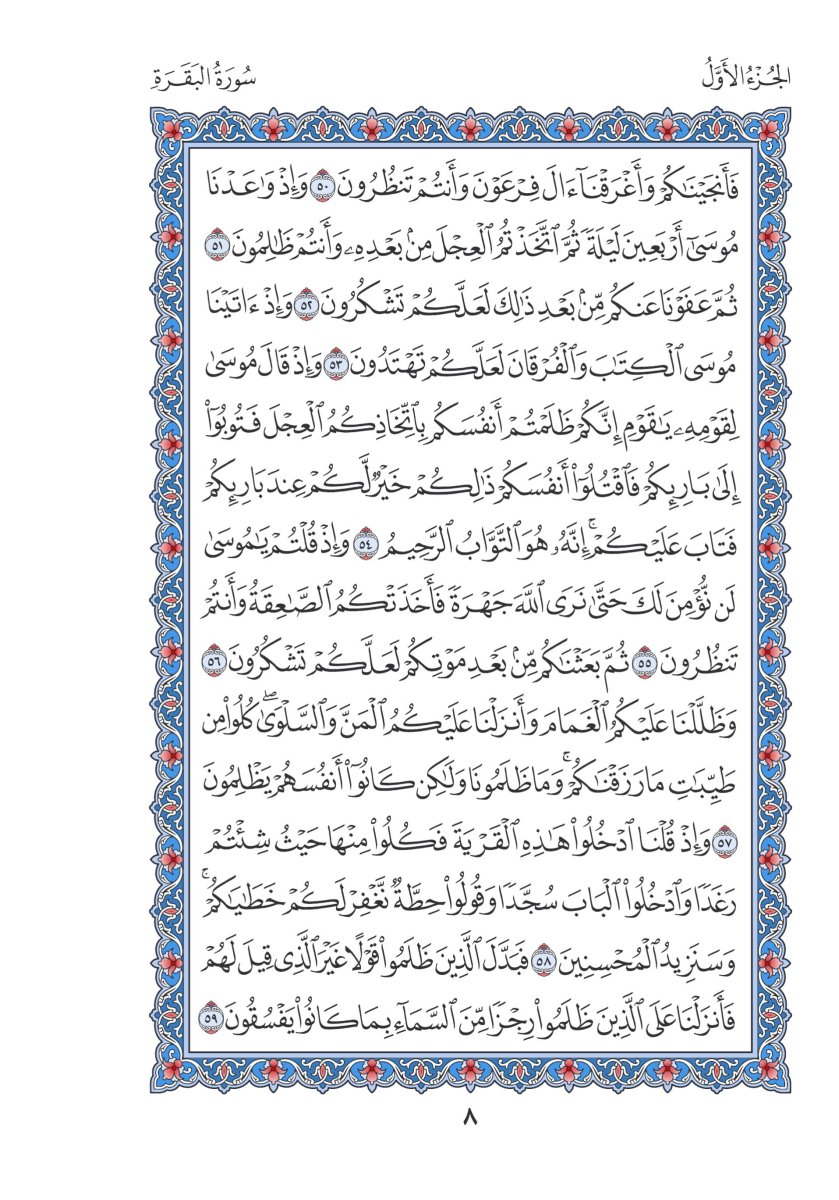 الجُزْءُ الأَوَّلُ
سُورَةُ البَقَرَةِ
فَأَنجَيْنَٰكُمْ وَأَغْرَقْنَآ ءَالَ فِرْعَوْنَ وَأَنتُمْ تَنظُرُونَ ٥٠ وَإِذْ وَٰعَدْنَا
مُوسَىٰٓ أَرْبَعِينَ لَيْلَةً ثُمَّ ٱتَّخَذْتُمُ ٱلْعِجْلَ مِنۢ بَعْدِهِۦ وَأَنتُمْ ظَٰلِمُونَ ٥١
ثُمَّ عَفَوْنَا عَنكُم مِّنۢ بَعْدِ ذَٰلِكَ لَعَلَّكُمْ تَشْكُرُونَ ٥٢ وَإِذْ ءَاتَيْنَا
مُوسَى ٱلْكِتَٰبَ وَٱلْفُرْقَانَ لَعَلَّكُمْ تَهْتَدُونَ ٥٣ وَإِذْ قَالَ مُوسَىٰ
لِقَوْمِهِۦ يَٰقَوْمِ إِنَّكُمْ ظَلَمْتُمْ أَنفُسَكُم بِٱتِّخَاذِكُمُ ٱلْعِجْلَ فَتُوبُوٓا۟
إِلَىٰ بَارِئِكُمْ فَٱقْتُلُوٓا۟ أَنفُسَكُمْ ذَٰلِكُمْ خَيْرٌ لَّكُمْ عِندَ بَارِئِكُمْ
فَتَابَ عَلَيْكُمْ ۚ إِنَّهُۥ هُوَ ٱلتَّوَّابُ ٱلرَّحِيمُ ٥٤ وَإِذْ قُلْتُمْ يَٰمُوسَىٰ
لَن نُّؤْمِنَ لَكَ حَتَّىٰ نَرَى ٱللَّهَ جَهْرَةً فَأَخَذَتْكُمُ ٱلصَّٰعِقَةُ وَأَنتُمْ
تَنظُرُونَ ٥٥ ثُمَّ بَعَثْنَٰكُم مِّنۢ بَعْدِ مَوْتِكُمْ لَعَلَّكُمْ تَشْكُرُونَ ٥٦
وَظَلَّلْنَا عَلَيْكُمُ ٱلْغَمَامَ وَأَنزَلْنَا عَلَيْكُمُ ٱلْمَنَّ وَٱلسَّلْوَىٰ ۖ كُلُوا۟ مِن
طَيِّبَٰتِ مَا رَزَقْنَٰكُمْ ۚ وَمَا ظَلَمُونَا وَلَٰكِن كَانُوٓا۟ أَنفُسَهُمْ يَظْلِمُونَ
٥٧ وَإِذْ قُلْنَا ٱدْخُلُوا۟ هَٰذِهِ ٱلْقَرْيَةَ فَكُلُوا۟ مِنْهَا حَيْثُ شِئْتُمْ
رَغَدًا وَٱدْخُلُوا۟ ٱلْبَابَ سُجَّدًا وَقُولُوا۟ حِطَّةٌ نَّغْفِرْ لَكُمْ خَطَٰيَٰكُمْ ۚ
وَسَنَزِيدُ ٱلْمُحْسِنِينَ ٥٨ فَبَدَّلَ ٱلَّذِينَ ظَلَمُوا۟ قَوْلًا غَيْرَ ٱلَّذِى قِيلَ لَهُمْ
فَأَنزَلْنَا عَلَى ٱلَّذِينَ ظَلَمُوا۟ رِجْزًا مِّنَ ٱلسَّمَآءِ بِمَا كَانُوا۟ يَفْسُقُونَ ٥٩
٨